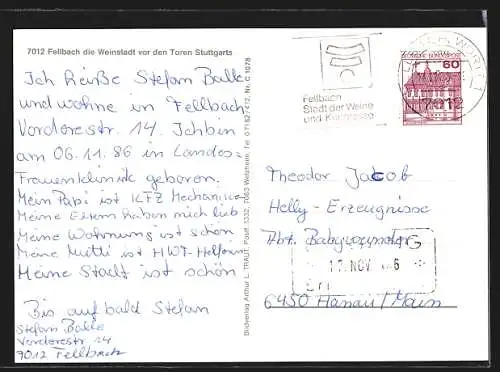 7012 Fellbach die Weinstadt vor den Toren Stuttgarts
Ich heiße Stefan Balle
und wohne in Fellbach
Vorderestr. 14. Ich bin
am 06.11.86 in Landes-
Frauenklinik geboren.
Mein Papi ist KFZ Mechanicer
Meine Eltern haben mich lieb
Meine Wohnung ist schön
Meine Mutti ist HWT-Helferin
Meine Stadt ist schön
Bis auf bald Stefan
Stefan Balle
Vorderestr 14
7012 Fellbach
Bildverlag Arthur L. TRAUT, Postf. 3332, 7063 Welzheim, Tel. 07182-412, Nr. c 1078
Fellbach
Stadt der Weine
und Kongresse
60
7012
Theodor Jacob
Helly-Erzeugnisse
Abt. Babywunder
17. NOV 86
6450 Hanau/Main